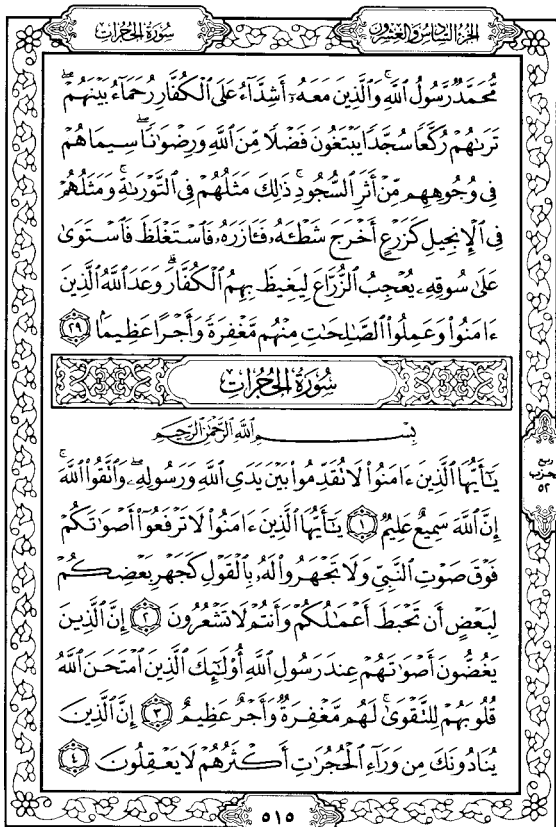 الجزء السادس والعشرون
سورة الحجرات
مُّحَمَّدٌ رَّسُولُ ٱللَّهِ ۚ وَٱلَّذِينَ مَعَهُۥٓ أَشِدَّآءُ عَلَى ٱلْكُفَّارِ رُحَمَآءُ بَيْنَهُمْ ۖ
تَرَىٰهُمْ رُكَّعًا سُجَّدًا يَبْتَغُونَ فَضْلًا مِّنَ ٱللَّهِ وَرِضْوَٰنًا ۖ سِيمَاهُمْ
فِى وُجُوهِهِم مِّنْ أَثَرِ ٱلسُّجُودِ ۚ ذَٰلِكَ مَثَلُهُمْ فِى ٱلتَّوْرَىٰةِ ۚ وَمَثَلُهُمْ
فِى ٱلْإِنجِيلِ كَزَرْعٍ أَخْرَجَ شَطْـَٔهُۥ فَـَٔازَرَهُۥ فَٱسْتَغْلَظَ فَٱسْتَوَىٰ
عَلَىٰ سُوقِهِۦ يُعْجِبُ ٱلزُّرَّاعَ لِيَغِيظَ بِهِمُ ٱلْكُفَّارَ ۗ وَعَدَ ٱللَّهُ ٱلَّذِينَ
ءَامَنُوا۟ وَعَمِلُوا۟ ٱلصَّٰلِحَٰتِ مِنْهُم مَّغْفِرَةً وَأَجْرًا عَظِيمًۢا ٢٩
سُورَةُ الحُجُرَات
بِسْمِ ٱللَّهِ ٱلرَّحْمَٰنِ ٱلرَّحِيمِ
يَٰٓأَيُّهَا ٱلَّذِينَ ءَامَنُوا۟ لَا تُقَدِّمُوا۟ بَيْنَ يَدَىِ ٱللَّهِ وَرَسُولِهِۦ ۖ وَٱتَّقُوا۟ ٱللَّهَ ۚ
إِنَّ ٱللَّهَ سَمِيعٌ عَلِيمٌ ١ يَٰٓأَيُّهَا ٱلَّذِينَ ءَامَنُوا۟ لَا تَرْفَعُوٓا۟ أَصْوَٰتَكُمْ
فَوْقَ صَوْتِ ٱلنَّبِىِّ وَلَا تَجْهَرُوا۟ لَهُۥ بِٱلْقَوْلِ كَجَهْرِ بَعْضِكُمْ
لِبَعْضٍ أَن تَحْبَطَ أَعْمَٰلُكُمْ وَأَنتُمْ لَا تَشْعُرُونَ ٢ إِنَّ ٱلَّذِينَ
يَغُضُّونَ أَصْوَٰتَهُمْ عِندَ رَسُولِ ٱللَّهِ أُو۟لَٰٓئِكَ ٱلَّذِينَ ٱمْتَحَنَ ٱللَّهُ
قُلُوبَهُمْ لِلتَّقْوَىٰ ۚ لَهُم مَّغْفِرَةٌ وَأَجْرٌ عَظِيمٌ ٣ إِنَّ ٱلَّذِينَ
يُنَادُونَكَ مِن وَرَآءِ ٱلْحُجُرَٰتِ أَكْثَرُهُمْ لَا يَعْقِلُونَ ٤
ربع
الحزب
٥٢
٥١٥